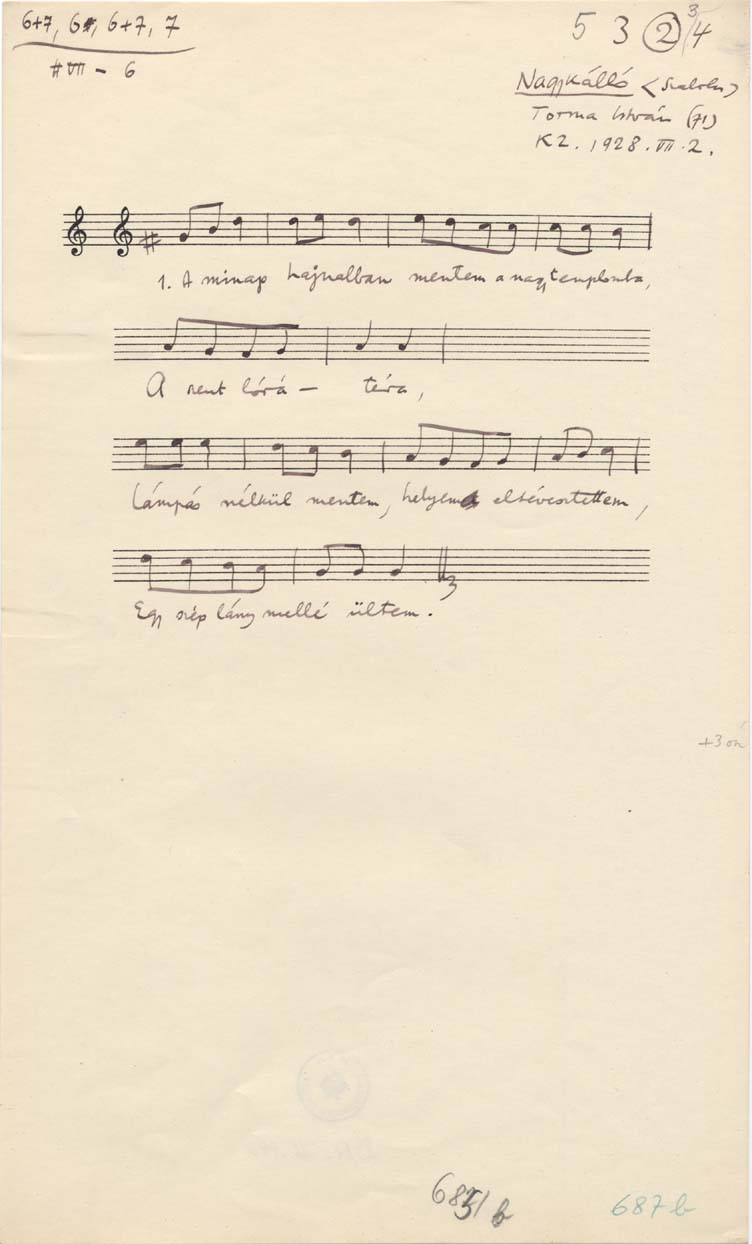 6+7, 6, 6+7, 7
#VII - 6
5 3 2 3/4
Nagykálló (Szabolcs)
Torma István (71)
KZ. 1928. VII. 2.
1. A minap hajnalban mentem a nagytemplomba,
A szent lórá — téra,
Lámpás nélkül mentem, helyemet eltévesztettem,
Egy szép lány mellé ültem.
3
687 b